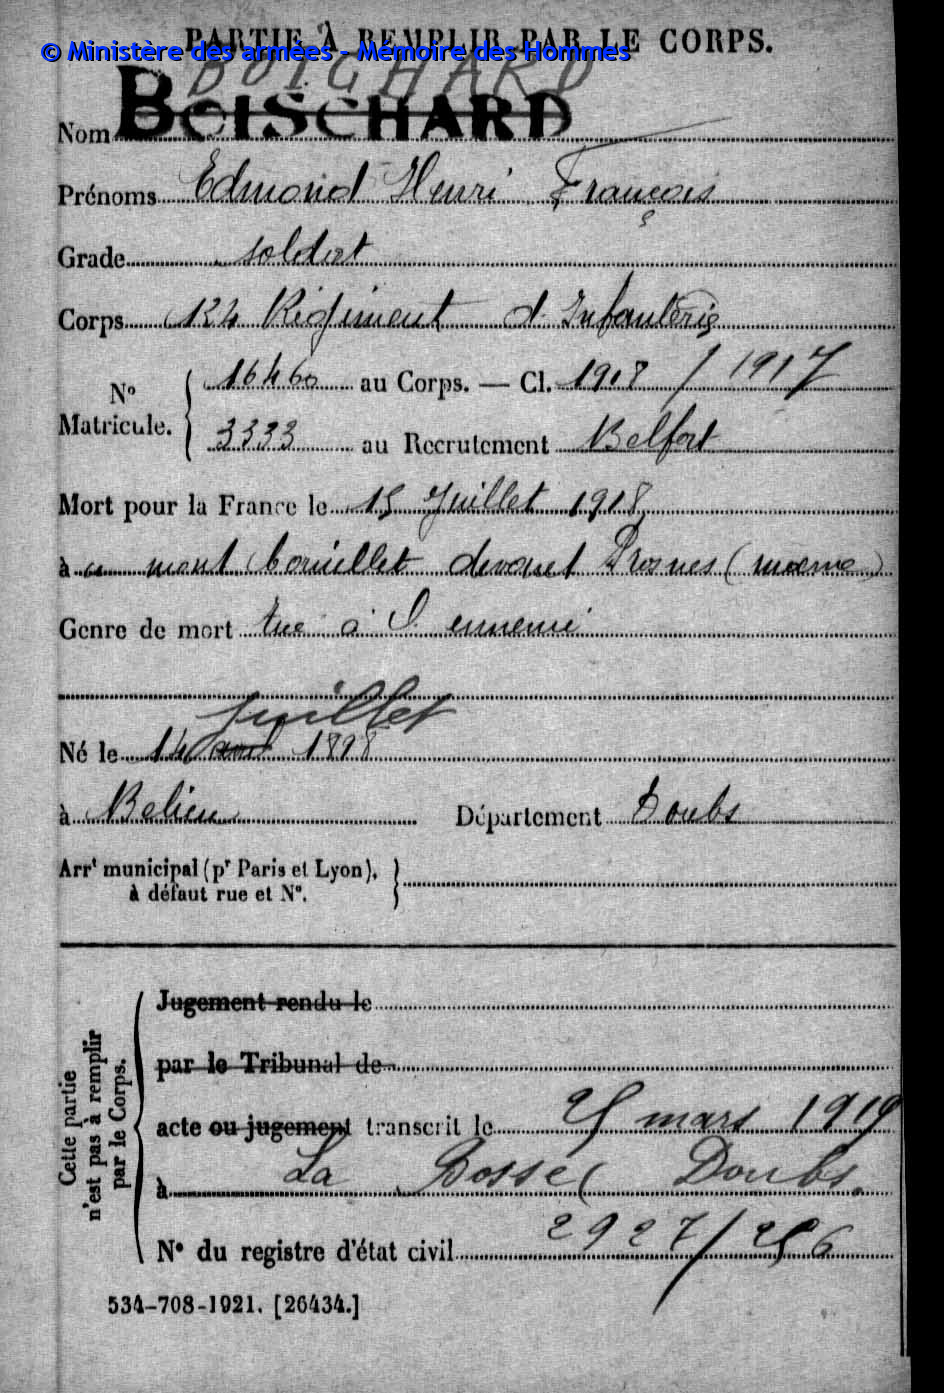 PARTIE À REMPLIR PAR LE CORPS.
© Ministère des armées - Mémoire des Hommes
BOICHARD
Nom BOISCHARD
Prénoms Edmond Henri François
Grade soldat
Corps 124 Régiment d'Infanterie
Nº Matricule. 16460 au Corps. — Cl. 1918 / 1917
3333 au Recrutement Belfort
Mort pour la France le 15 Juillet 1918
à au mont Cornillet devant Prosnes (marne)
Genre de mort tué à l'ennemi
juillet
Né le 14 avril 1898
à Belieu Département Doubs
Arrt municipal (pr Paris et Lyon),
à défaut rue et Nº.
Cette partie
n'est pas à remplir
par le Corps.
Jugement rendu le
par le Tribunal de
acte ou jugement transcrit le 25 mars 1919
à La Bosse (Doubs.
Nº du registre d'état civil 2927/256
534-708-1921. [26434.]